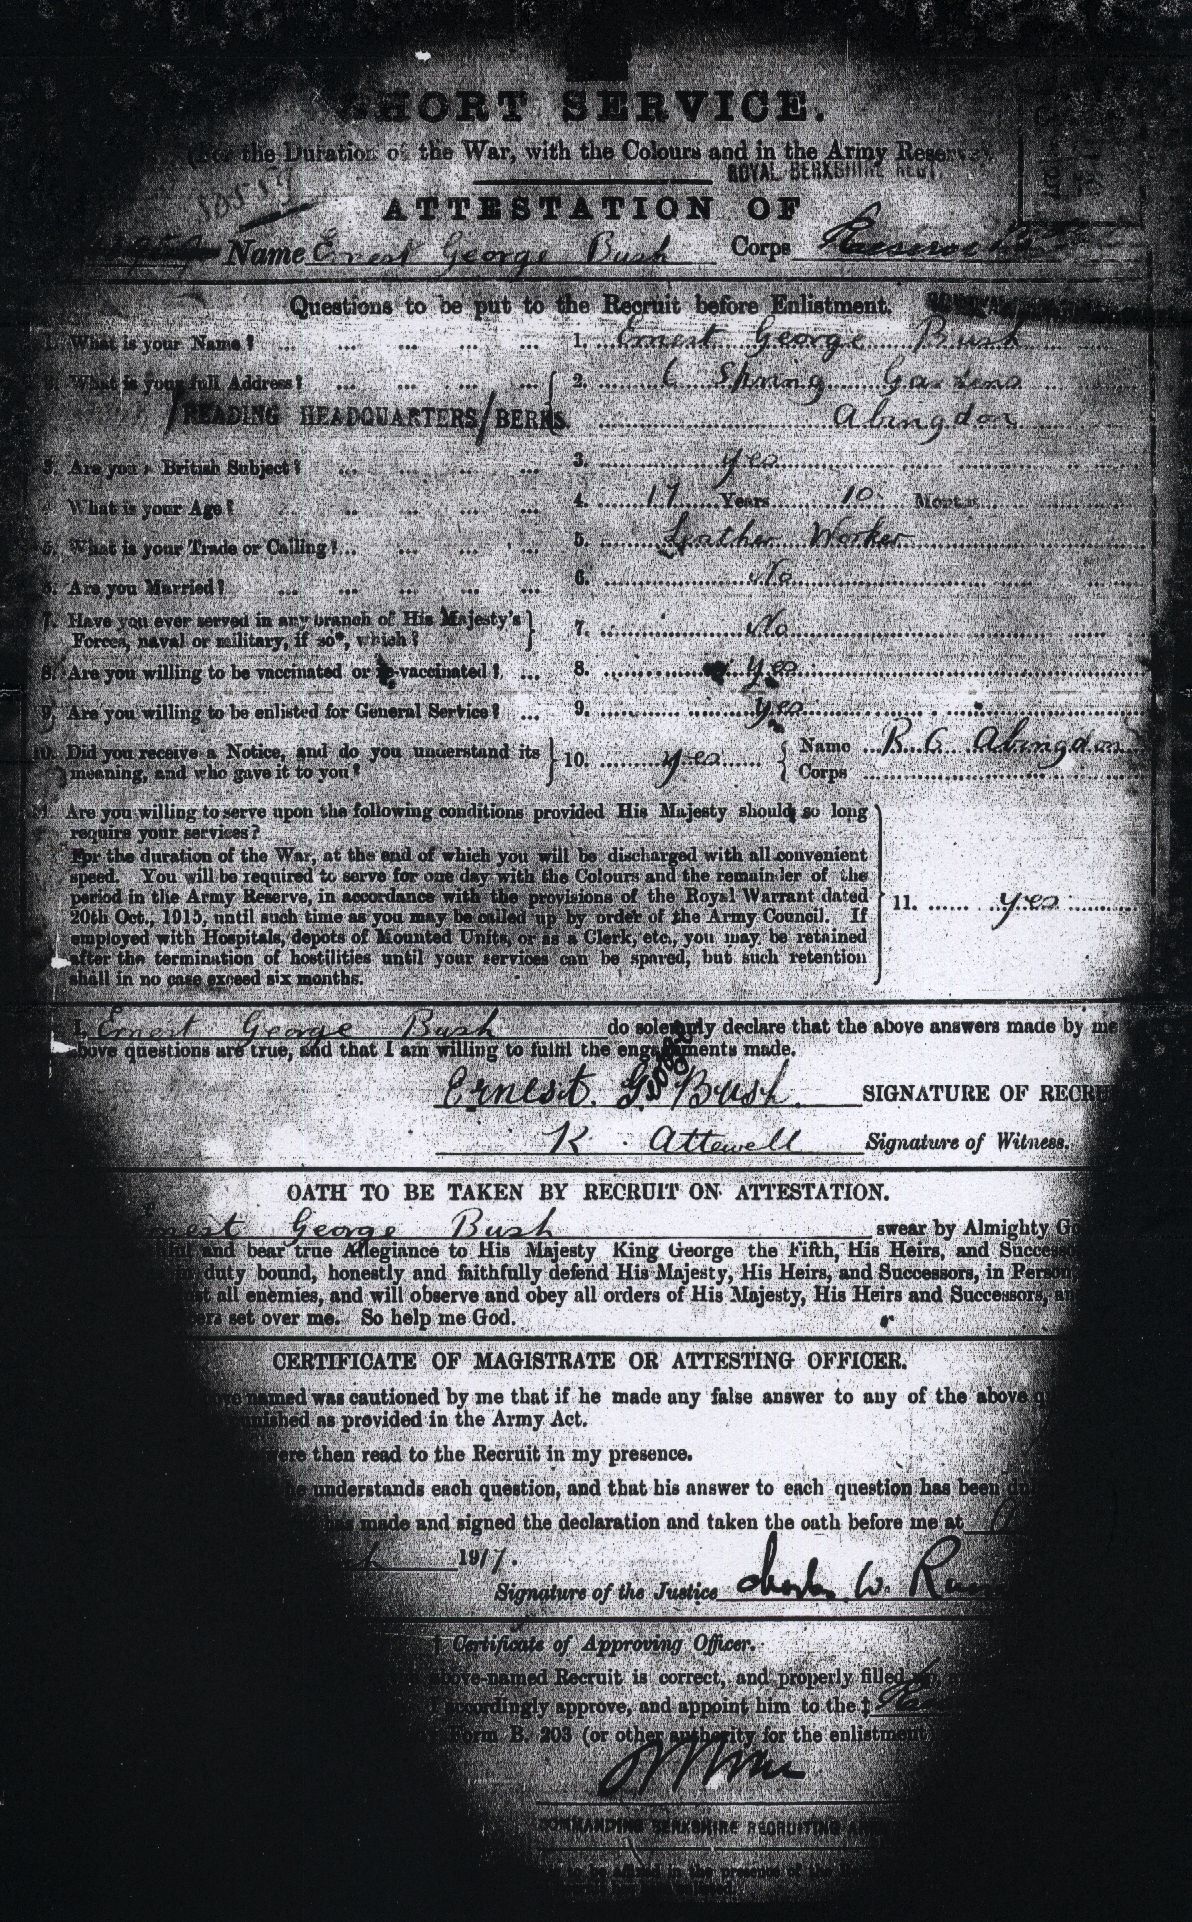 SHORT SERVICE.
(For the Duration of the War, with the Colours and in the Army Reserve).
ROYAL BERKSHIRE REGT.
ATTESTATION OF
Name Ernest George Bush Corps Reserve
Questions to be put to the Recruit before Enlistment.
1. What is your Name? ... ... ... ... ... 1. Ernest George Bush
2. What is your full Address? ... ... ... ... 2. 6 Spring Gardens
/READING HEADQUARTERS/BERKS. Abingdon
3. Are you a British Subject? ... ... ... ... 3. yes
4. What is your Age? ... ... ... ... 4. 17 Years 10 Months
5. What is your Trade or Calling? ... ... ... ... 5. Leather Worker
6. Are you Married? ... ... ... ... ... 6. No
7. Have you ever served in any branch of His Majesty's
Forces, naval or military, if so*, which? 7. No
8. Are you willing to be vaccinated or re-vaccinated? ... 8. yes
9. Are you willing to be enlisted for General Service? ... 9. yes
10. Did you receive a Notice, and do you understand its
meaning, and who gave it to you? 10. yes Name R O Abingdon
Corps
11. Are you willing to serve upon the following conditions provided His Majesty should so long
require your services?
For the duration of the War, at the end of which you will be discharged with all convenient
speed. You will be required to serve for one day with the Colours and the remainder of the
period in the Army Reserve, in accordance with the provisions of the Royal Warrant dated
20th Oct., 1915, until such time as you may be called up by order of the Army Council. If
employed with Hospitals, depots of Mounted Units, or as a Clerk, etc., you may be retained
after the termination of hostilities until your services can be spared, but such retention
shall in no case exceed six months.
11. yes
I, Ernest George Bush do solemnly declare that the above answers made by me
above questions are true, and that I am willing to fulfil the engagements made.
Ernest George Bush SIGNATURE OF RECRU
K. Attewell Signature of Witness.
OATH TO BE TAKEN BY RECRUIT ON ATTESTATION.
Ernest George Bush swear by Almighty Go
and bear true Allegiance to His Majesty King George the Fifth, His Heirs, and Success
duty bound, honestly and faithfully defend His Majesty, His Heirs, and Successors, in Person,
all enemies, and will observe and obey all orders of His Majesty, His Heirs and Successors, an
set over me. So help me God.
CERTIFICATE OF MAGISTRATE OR ATTESTING OFFICER.
named was cautioned by me that if he made any false answer to any of the above q
punished as provided in the Army Act.
were then read to the Recruit in my presence.
he understands each question, and that his answer to each question has been du
has made and signed the declaration and taken the oath before me at
1917.
Signature of the Justice Charles W.
† Certificate of Approving Officer.
above-named Recruit is correct, and properly filled
I accordingly approve, and appoint him to the ‡
Form B. 203 (or other authority for the enlistment)
COMMANDING BERKSHIRE RECRUITING AREA
in the presence of the